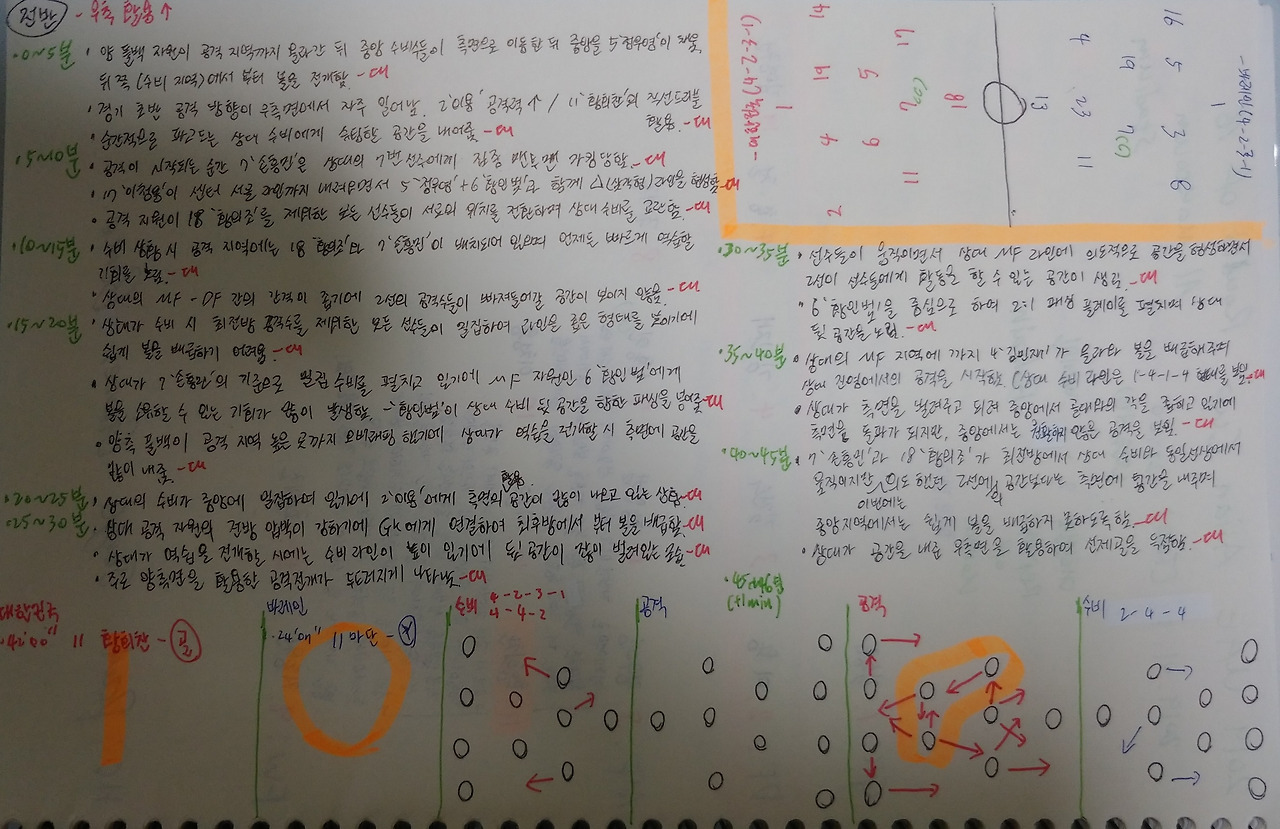 전반 - 우측 활용↑
.0~5분 • 양 풀백 자원이 공격 지역까지 올라간 뒤 중앙 수비수들이 측면으로 이동한 뒤 중앙을 5'정우영'이 채움.
뒤쪽(수비 지역)에서부터 볼을 전개함. -대
• 경기 초반 공격 방향이 우측면에서 자주 일어남. 2'이용' 공격력↑ / 11'황희찬'의 직선드리블
활용. -대
• 순간적으로 파고드는 상대 수비에게 슈팅할 공간을 내어줌. -대
.5~10분 • 공격이 시작되는 순간 7'손흥민'은 상대의 7번 선수에게 집중 맨투맨 마킹당함. -대
• 17'이청용'이 센터 서클 라인까지 내려오면서 5'정우영'+6'황인범'과 함께 △(삼각형)라인을 형성함 -대
• 공격 자원이 18'황의조'를 제외한 모든 선수들이 서로의 위치를 전환하며 상대 수비를 교란함. -대
.10~15분 • 수비 상황 시 공격 지역에는 18'황의조'와 7'손흥민'이 배치되어 있으며 언제든 빠르게 역습할
기회를 노림. -대
• 상대의 MF - DF 간의 간격이 좁기에 2선의 공격수들이 빠져들어갈 공간이 보이지 않음. -대
.15~20분 • 상대가 수비 시 최전방 공격수를 제외한 모든 선수들이 밀집하여 라인을 좁은 형태를 보이기에
쉽게 볼을 배급하기 어려움. -대
• 상대가 7'손흥민'의 기준으로 밀집 수비를 펼치고 있기에 MF 자원인 6'황인범'에게
볼을 소유할 수 있는 기회가 많이 발생함. → '황인범'이 상대 수비 뒷 공간을 향한 패싱을 넣어줌 -대
• 양측 풀백이 공격 지역 높은 곳까지 오버래핑 했기에 상대가 역습을 전개할 시 측면에 공간을
많이 내줌. -대
.20~25분 • 상대의 수비가 중앙에 밀집하여 있기에 2'이용'에게 측면의 활용 공간이 많이 나오고 있는 상황. -대
.25~30분 • 상대 공격 자원의 전방 압박이 강하기에 GK에게 연결하여 최후방에서부터 볼을 배급함. -대
• 상대가 역습을 전개할 시에는 수비라인이 높이 있기에 뒷 공간이 많이 벌어있는 모습. -대
• 주로 양측면을 활용한 공격전개가 두드러지게 나타남. -대
-대한민국(4-2-3-1)
1
14 19 4 2
5 6
17 7(C) 11
18
-바레인(4-2-3-1)
1
16 5 3 8
4 19 23 7(C) 11
13
.30~35분 • 선수들이 움직이면서 상대 MF 라인에 의도적으로 공간을 형성하면서
2선의 선수들에게 활동을 할 수 있는 공간이 생김. -대
• 6'황인범'을 중심으로 하여 2:1 패싱 플레이를 펼치며 상대
뒷 공간을 노림. -대
.35~40분 • 상대의 MF 지역에까지 4'김민재'가 올라와 볼을 배급해주며
상대 진영에서의 공격을 시작함 (상대 수비 라인은 1-4-1-4 형태를 보임 -대
• 상대가 측면을 벌려주고 되려 중앙에서 골대와의 각을 좁히고 있기에
측면을 돌파가 되지만, 중앙에서는 원활하지 않은 공격을 보임. -대
.40~45분 • 7'손흥민'과 18'황의조'가 최전방에서 상대 수비와 동일선상에서
움직이지만, 의도했던 2선에의 공간보다는 측면에 공간을 내주며
이번에는
중앙지역에서는 쉽게 볼을 배급하지 못하도록함. -대
• 상대가 공간을 내준 우측면을 활용하여 선제골을 득점함. -대
.45~46분
(+1min)
대한민국
.42'00" 11 황희찬 - 골
바레인
.24'07" 11 마단 -
수비 4-2-3-1
4-4-2
공격
공격
수비 2-4-4